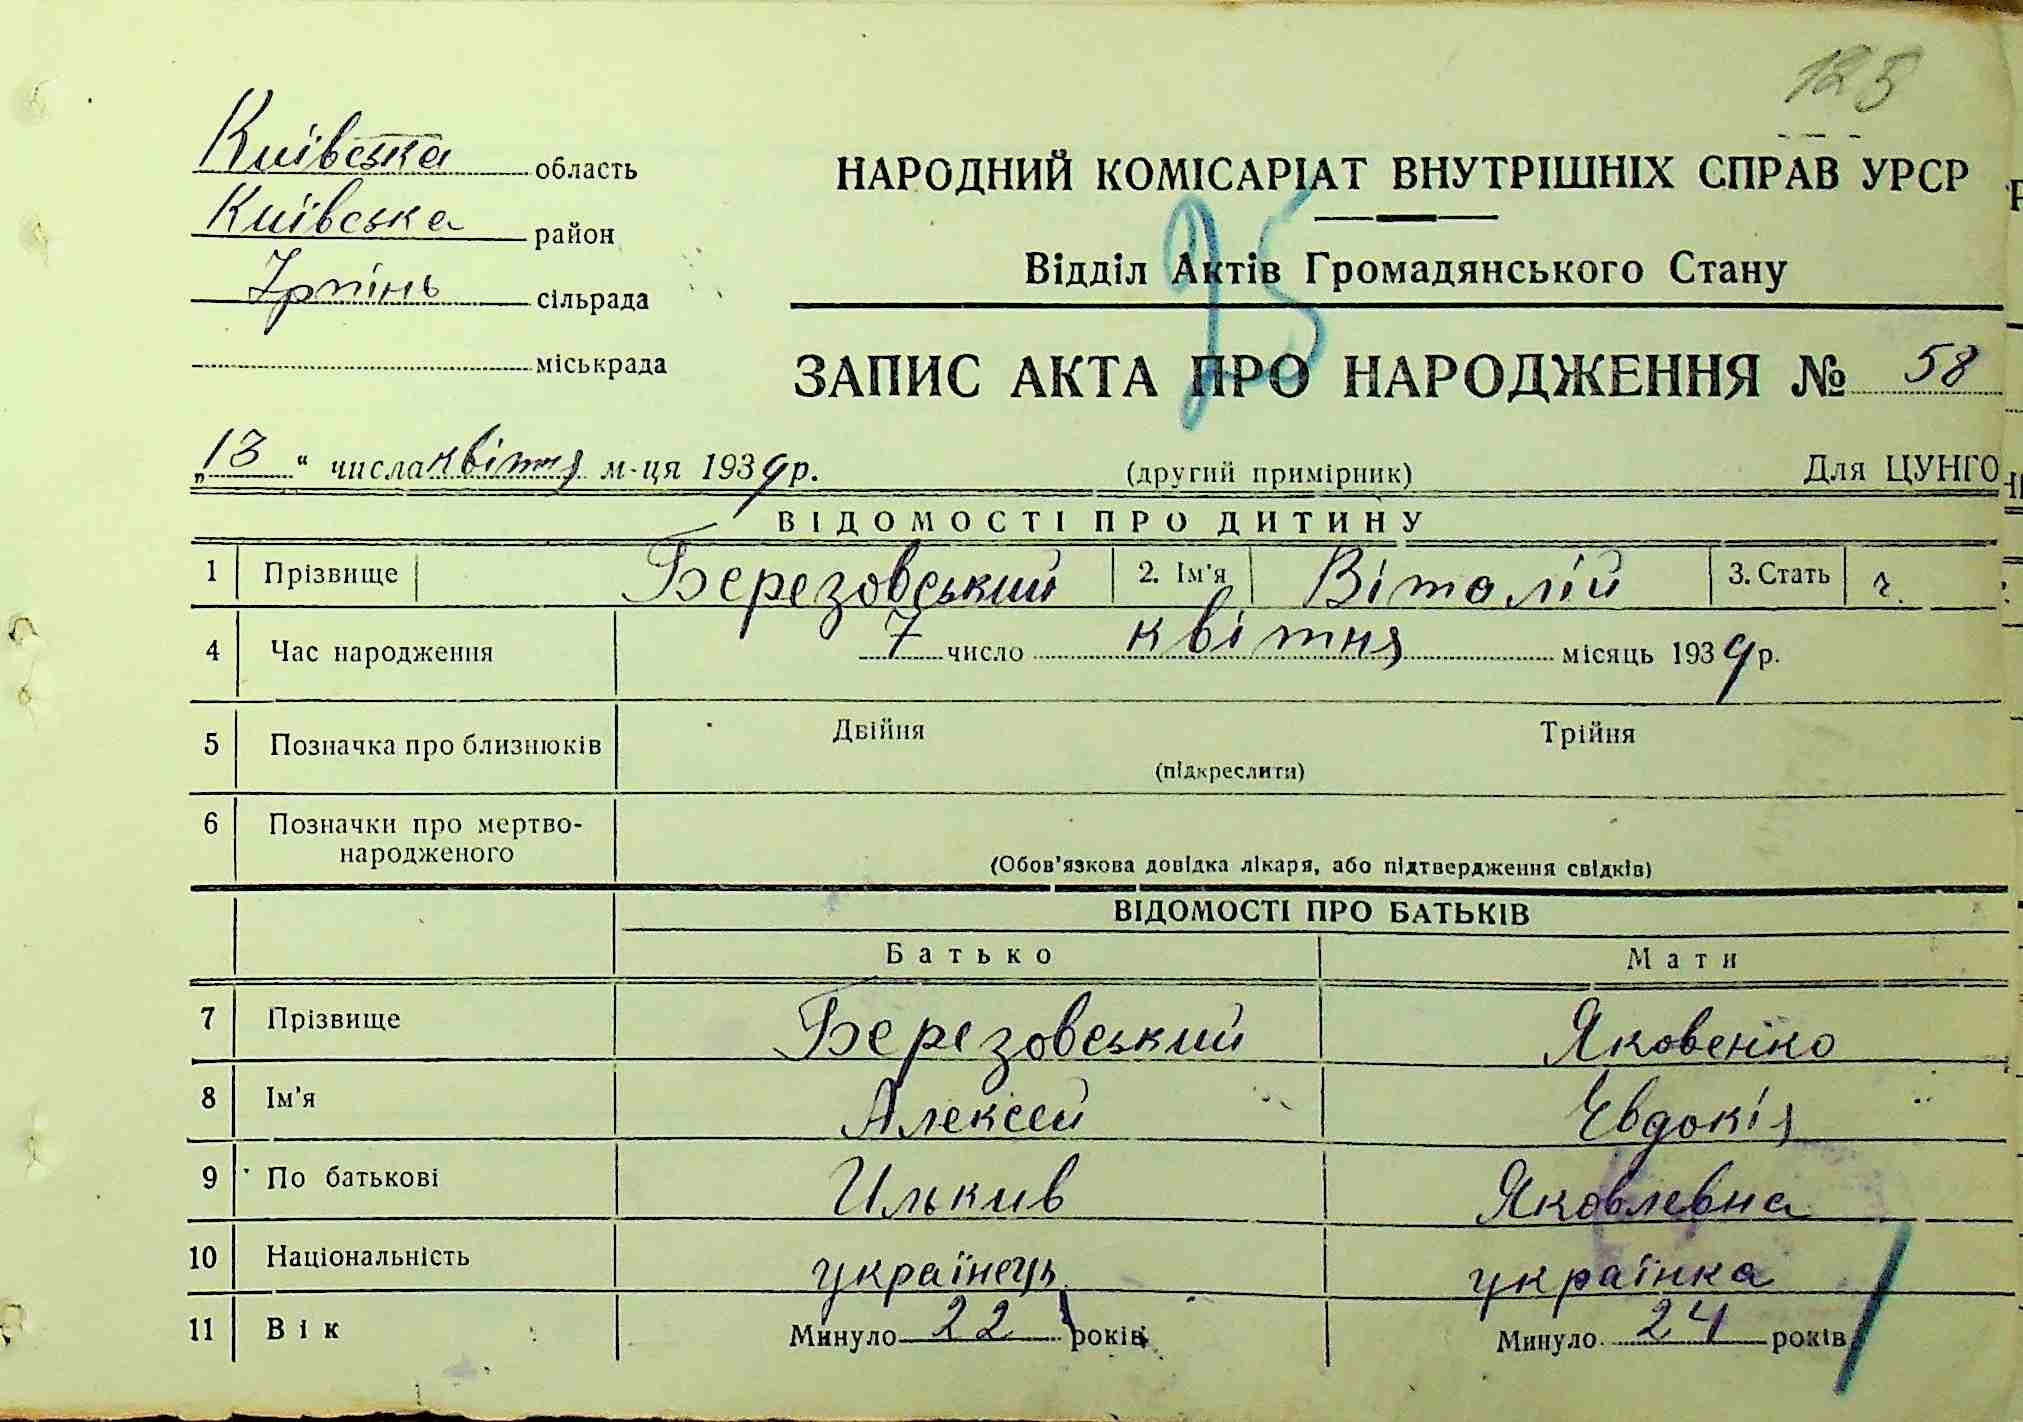 125
Київська область
Київська район
Ірпінь сільрада
міськрада
НАРОДНИЙ КОМІСАРІАТ ВНУТРІШНІХ СПРАВ УРСР
Відділ Актів Громадянського Стану
25
ЗАПИС АКТА ПРО НАРОДЖЕННЯ № 58
„13“ числа квітня м-ця 1939 р. (другий примірник) Для ЦУНГО
ВІДОМОСТІ ПРО ДИТИНУ
1 Прізвище Березовський 2. Ім'я Віталій 3. Стать ч.
4 Час народження 7 число квітня місяць 1939 р.
5 Позначка про близнюків Двійня Трійня
(підкреслити)
6 Позначки про мертво-
народженого
(Обов'язкова довідка лікаря, або підтвердження свідків)
ВІДОМОСТІ ПРО БАТЬКІВ
Батько Мати
7 Прізвище Березовський Яковенко
8 Ім'я Алексей Евдокія
9 По батькові Илькив Яковлевна
10 Національність українець українка
11 Вік Минуло 22 років Минуло 24 років